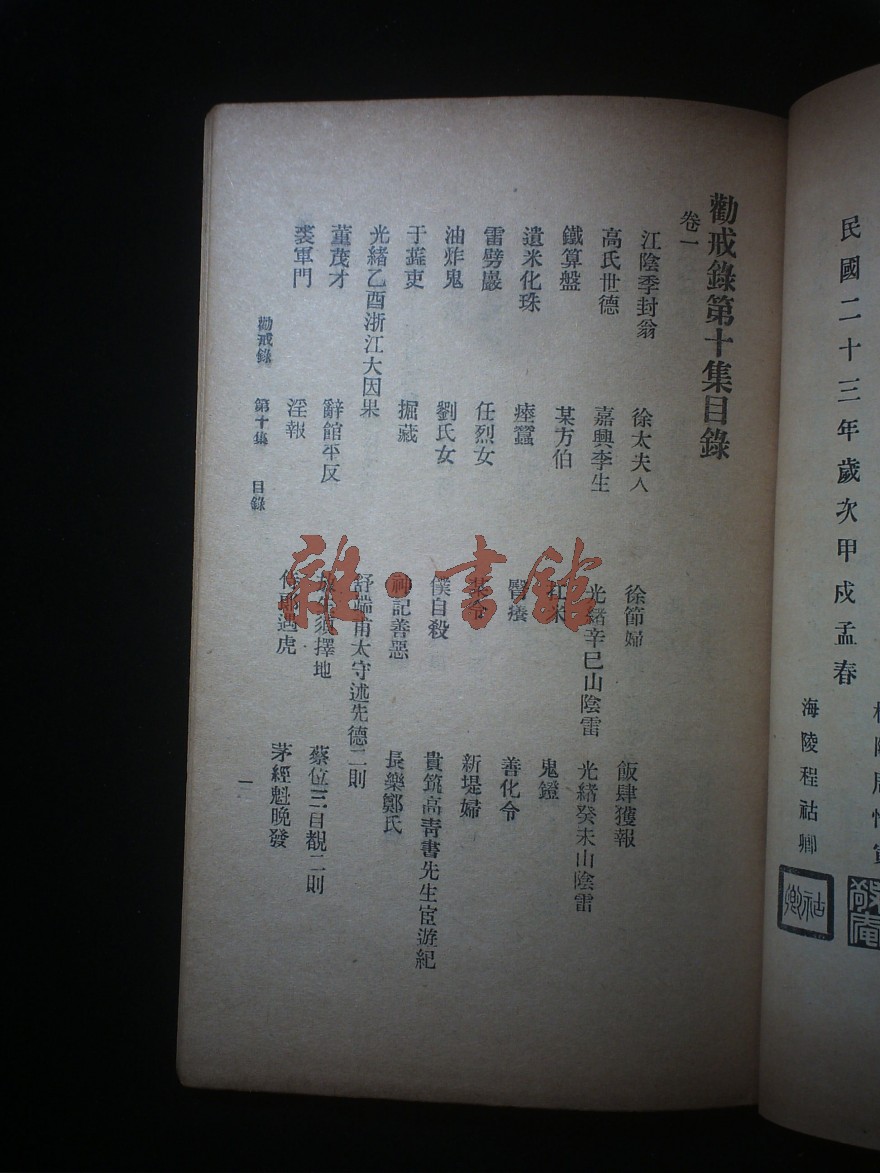 民國二十三年歲次甲戍孟春
海陵程祜卿
祜卿
敬庵
勸戒錄第十集目錄
卷一
江陰季封翁 徐太夫人 徐節婦 飯肆獲報
高氏世德 嘉興李生 光緒辛巳山陰雷 光緒癸未山陰雷
鐵算盤 某方伯 米 鬼鐙
遺米化珠 瘞蠶 醫癢 善化令
雷劈巖 任烈女 新堤婦
油炸鬼 劉氏女 僕自殺 貴筑高青書先生宦游紀
于蓮吏 掘藏 神記善惡 長樂鄭氏
光緒乙酉浙江大因果 舒端甫太守述先德二則
董茂才 辭館平反 放生須擇地 蔡位三目覩二則
裘軍門 淫報 侍郎遇虎 茅經魁晚發
勸戒錄 第十集 目錄
一
雜·書館